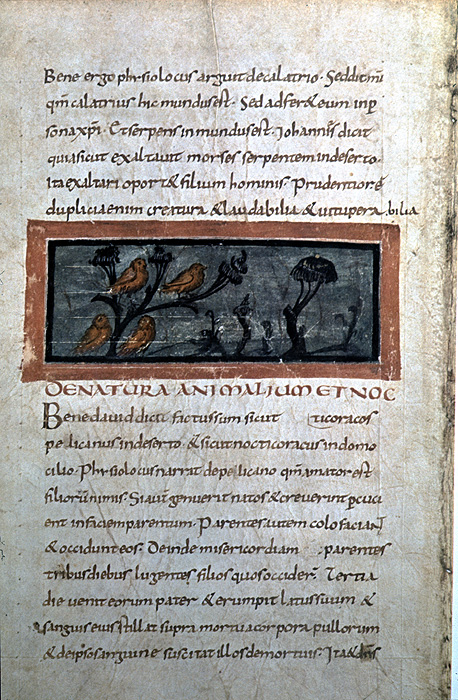 Bene ergo phisiolocus arguit decalatrio. Seddicimi
qm̄ calatrius hic mundus est. Sed adfer& eum inp
sona xp̄i. Et serpens inmundus est. Iohannis dicit
quia sicut exaltauit morses serpentem indeserto.
Ita exaltari oport& filium hominis. Prudentiorē
duplacia enim creatura & laudabilia & uitupera.bilia
DE NATURA ANIMALIUM ET NOC
Bene dauid dicit factus sum sicut ticoracos
pelicanus in deserto. & sicut nocticoracus in domo
cilio. Phisiolocus narrat de pelicano qm̄ amator est
filiorū nimis. Si autē genuerit natos & creuerint ꝑcuci
ent in faciem parentum. Parentes autem colo faciant
& occidunt eos. Deinde misericordiam parentes
tribus diebus lugentes filios quos occider̄. Tertia
die uenit eorum pater & erumpit latus suum &
sanguis eius stillat supra mortua corpora pullorum
& de ipso sanguine suscitat illos de mortuis. Ita & dn̄s